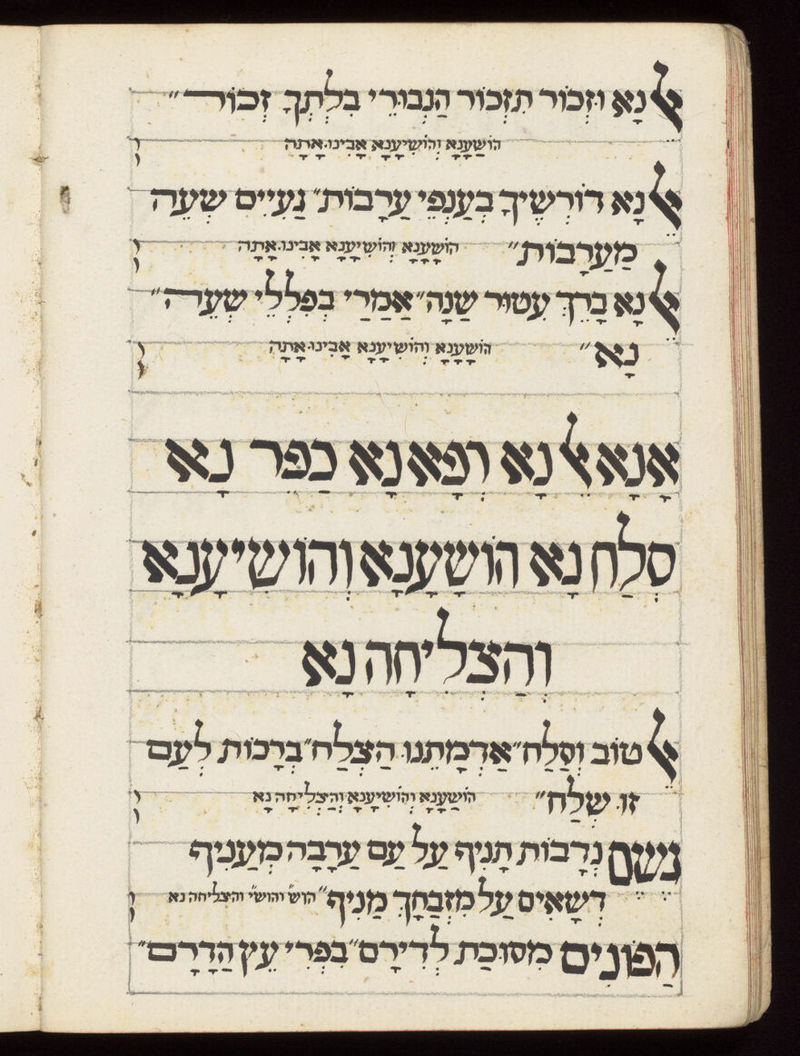 אל נָא וּזְכוֹר תִזְכּוֹר הַנְבוּרֵי בִלְתְךָ זְכוֹר״
הושַעֲנָא וְהושִיעֲנָא אָבִינוּ אָתָה
אל נָא דוֹרְשֶיךָ בְעַנְפֵי עֲרָבוֹת״ נַעִיים שְעֵה
מַעֲרָבוֹת״ הושַעֲנָא וְהושִיעֲנָא אָבִינוּ אָתָה
אל נָא בָרֵךְ עִטוּר שָנָה״ אֲמָרַי בְפִלְלֵי שְעֵרה״
נָא״ הושַעֲנָא וְהושִיעֲנָא אָבִינוּ אָתָה
אָנָא אֵל נָא רְפָא נָא כַפֵר נָא
סְלַח נָא הוֹשַעֲנָא וְהוֹשִיעֲנָא
וְהַצְלִיחָה נָא
אֵל טוֹב וְסַלַח״ אַדְמָתֵנוּ הַצְלַח״ בְרָכוֹת לְעַם
זוּ שְלַח״ הושַעֲנָא וְהושִיעֲנָא וְהַצְלִיחָה נָא
גֶשֶם נְדָבוֹת תָנִיף עַל עַם עֲרָבָה מְעַנִיף
דְשָאִים עַל מִזְבַחָךְ מַנִיף״ הוש״ והושי״ והצליחה נא
הַפוֹנִים מְסוּכַת לְדִירָם״ בִפְרִי עֵץ הֲדָרָם״